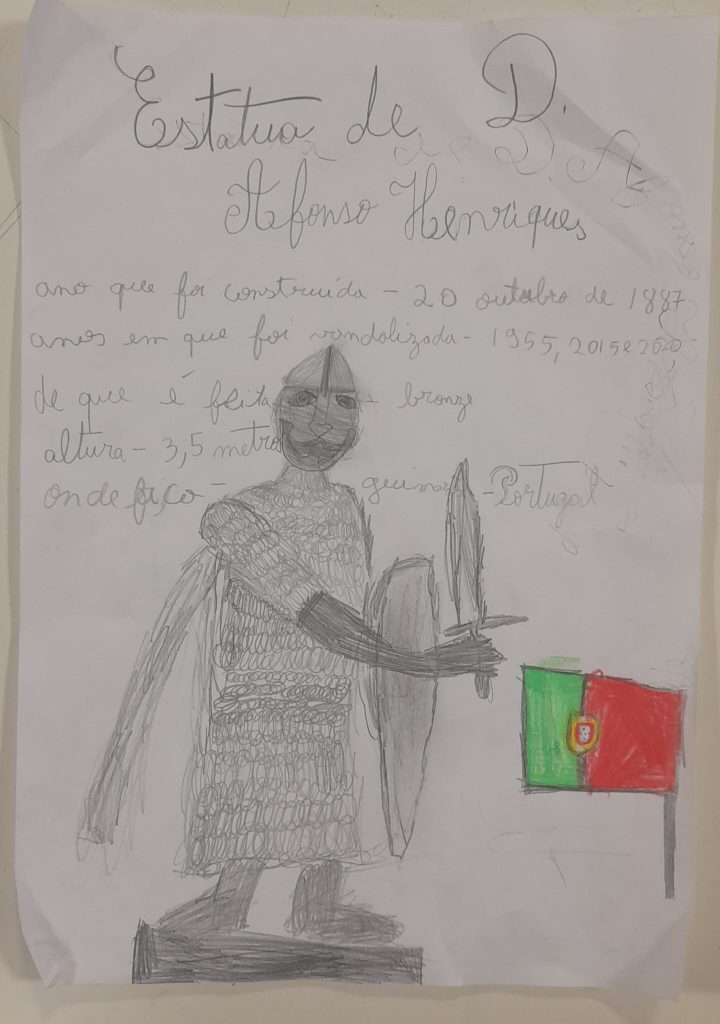 Estatua de D.
Afonso Henriques
ano que foi construida - 20 outubro de 1887
anos em que foi vandalizada - 1955, 2015 e 2020
de que é feita - bronze
altura - 3,5 metro
onde fico - guima - Portugal